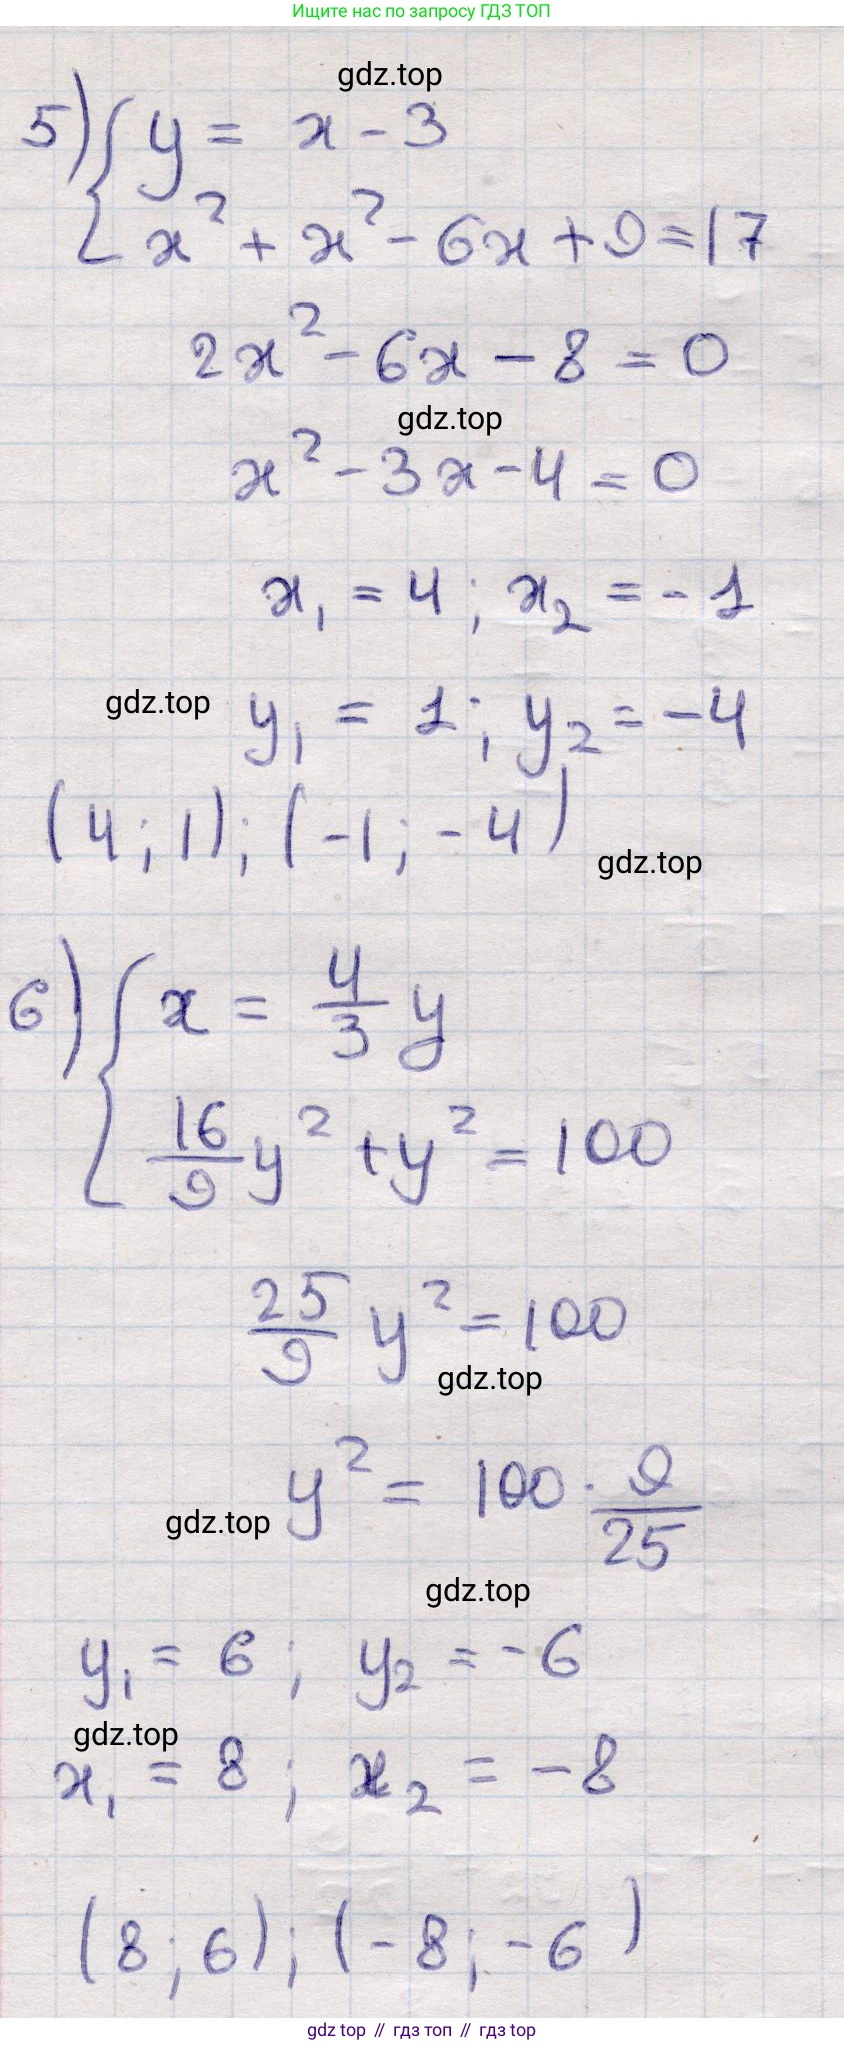 Ищите нас по запросу ГДЗ ТОП
gdz.top
5) { y = x - 3
x² + x² - 6x + 9 = 17
2x² - 6x - 8 = 0
gdz.top
x² - 3x - 4 = 0
x₁ = 4 ; x₂ = - 1
gdz.top
y₁ = 1 ; y₂ = - 4
(4 ; 1) ; (-1 ; -4)
gdz.top
6) { x = 4/3 y
16/9 y² + y² = 100
25/9 y² = 100
gdz.top
y² = 100 · 9/25
gdz.top
gdz.top
y₁ = 6 ; y₂ = -6
gdz.top
x₁ = 8 ; x₂ = -8
(8 ; 6) ; (-8 ; -6)
gdz top // гдз топ // gdz top